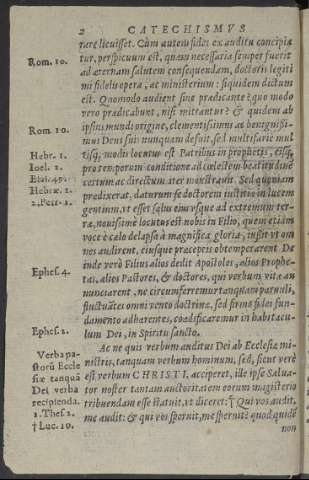 2 CATECHISMVS
rare licuisset. Cùm autem fides ex auditu concipia
tur, perspicuum est, quàm necessaria semper fuerit
Rom. 10.
ad æternam salutem consequendam, doctoris legiti
mi fidelis opera, ac ministerium: siquidem dictum
est. Quomodo audient sine prædicante? quo modo
verò prædicabunt, nisi mittantur? & quidem ab
Rom. 10.
ipsius mundi origine, clementissimus ac benignissi-
mus Deus suis nunquam defuit, sed multifariè mul
Hebr. 1.
tisq; modis locutus est Patribus in prophetis, eisq;
Ioel. 2.
pro temporum conditione ad cælestem beatitudinē
certum ac directum iter monstrauit. Sed quoniam
Hebræ. 2.
prædixerat, daturum se doctorem iustitiæ in lucem
2. Pet. 1.
gentium, vt esset salus eius vsque ad extremum ter-
ræ, nouissimè locutus est nobis in Filio, quem etiam
voce è cælo delapsa à magnifica gloria, iussit vt om
nes audirent, eiusque præceptis obtemperarent De
inde verò Filius alios dedit Apostolos, alios Prophe-
Ephes. 4.
tas, alios Pastores, & doctores, qui verbum vitæ an
nunciarent, ne circumferremur tanquam paruuli,
fluctuātes omni vento doctrinæ, sed firmo fidei fun-
damento adhærentes, coædificaremur in habitacu-
Ephes. 2.
lum Dei, in Spiritu sancto.
Ac ne quis verbum auditus Dei ab Ecclesiæ mi-
Verba pa-
nistris, tanquam verbum hominum, sed, sicut verè
storū Eccle
est verbum CHRISTI, acciperet, ille ipse Salua-
siæ tanquā
tor noster tantam auctoritatem eorum magisterio
Dei verba
recipienda.
tribuendam esse statuit, vt diceret: † Qui vos audit,
1. Thes. 2.
me audit: & qui vos spernit, me spernit: quod quidē
† Luc. 10.
non